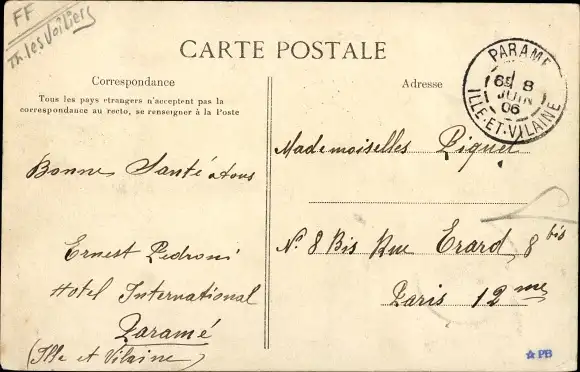 FF
Th. les Voiliers
CARTE POSTALE
Correspondance
Tous les pays etrangers n'acceptent pas la
correspondance au recto, se renseigner à la Poste
Bonne Santé a tous
Ernest Pedroni
Hotel International
Paramé
(Ille et Vilaine)
Adresse
PARAMÉ
6E 8
JUIN
06
ILLE-ET-VILAINE
Mademoiselles Piquet
N. 8 Bis Rue Erard, 8 bis
Paris 12me
PB